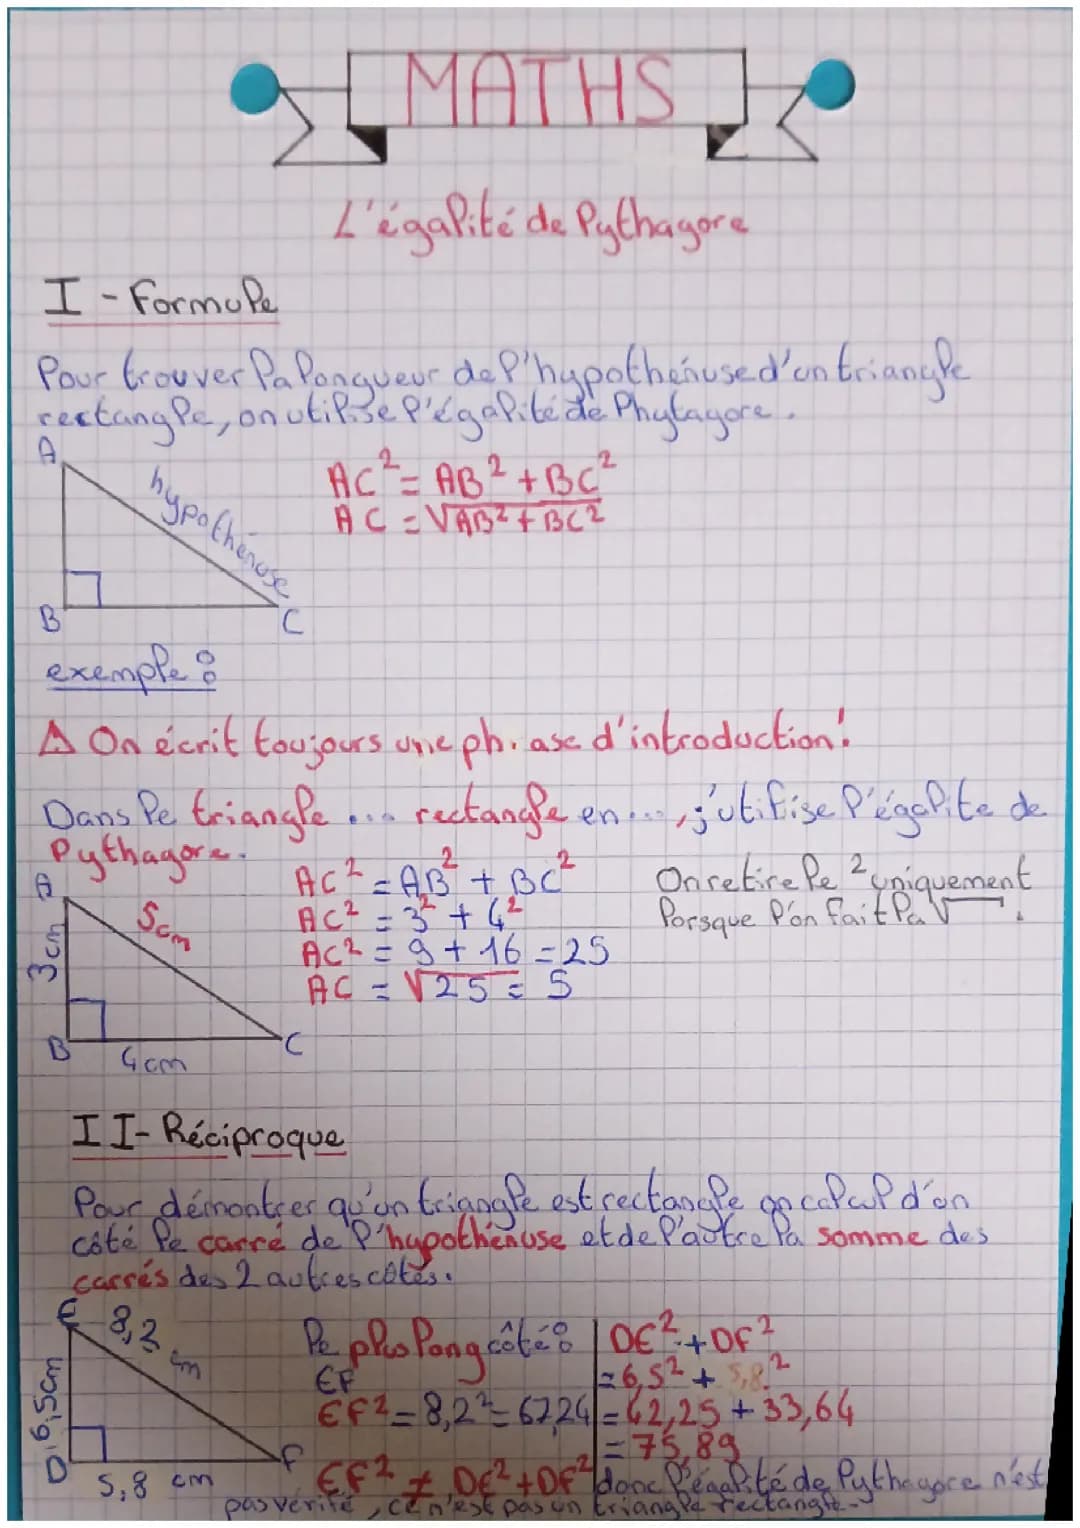 MATHS
L'égalité de Pythagore
I - Formule
Pour trouver la longueur de l'hypothénuse d'un triangle
rectangle, on utilise l'égalité de Phytagore.
A
hypothénuse
B
C
AC² = AB² + BC²
AC = √AB² + BC²
exemple :
⚠ On écrit toujours une phrase d'introduction!
Dans le triangle ... rectangle en ..., j'utilise l'égalite de
Pythagore.
A
3cm
5cm
B
4cm
C
AC² = AB² + BC²
AC² = 3² + 4²
AC² = 9 + 16 = 25
AC = √25 = 5
On retire le ² uniquement
lorsque l'on fait la √ .
II- Réciproque
Pour démontrer qu'un triangle est rectangle on calcul d'un
côté le carré de l'hypothénuse et de l'autre la somme des
carrés des 2 autres côtés.
E
8,2 cm
6,5cm
D
5,8 cm
F
le plus long côté :
EF
EF² = 8,2² = 67,24
EF² ≠ DE² + DF²
DE² + DF²
= 6,5² + 5,8²
= 42,25 + 33,64
= 75,89
donc l'égalité de Pythagore n'est
pas vérifié, ce n'est pas un triangle rectangle.